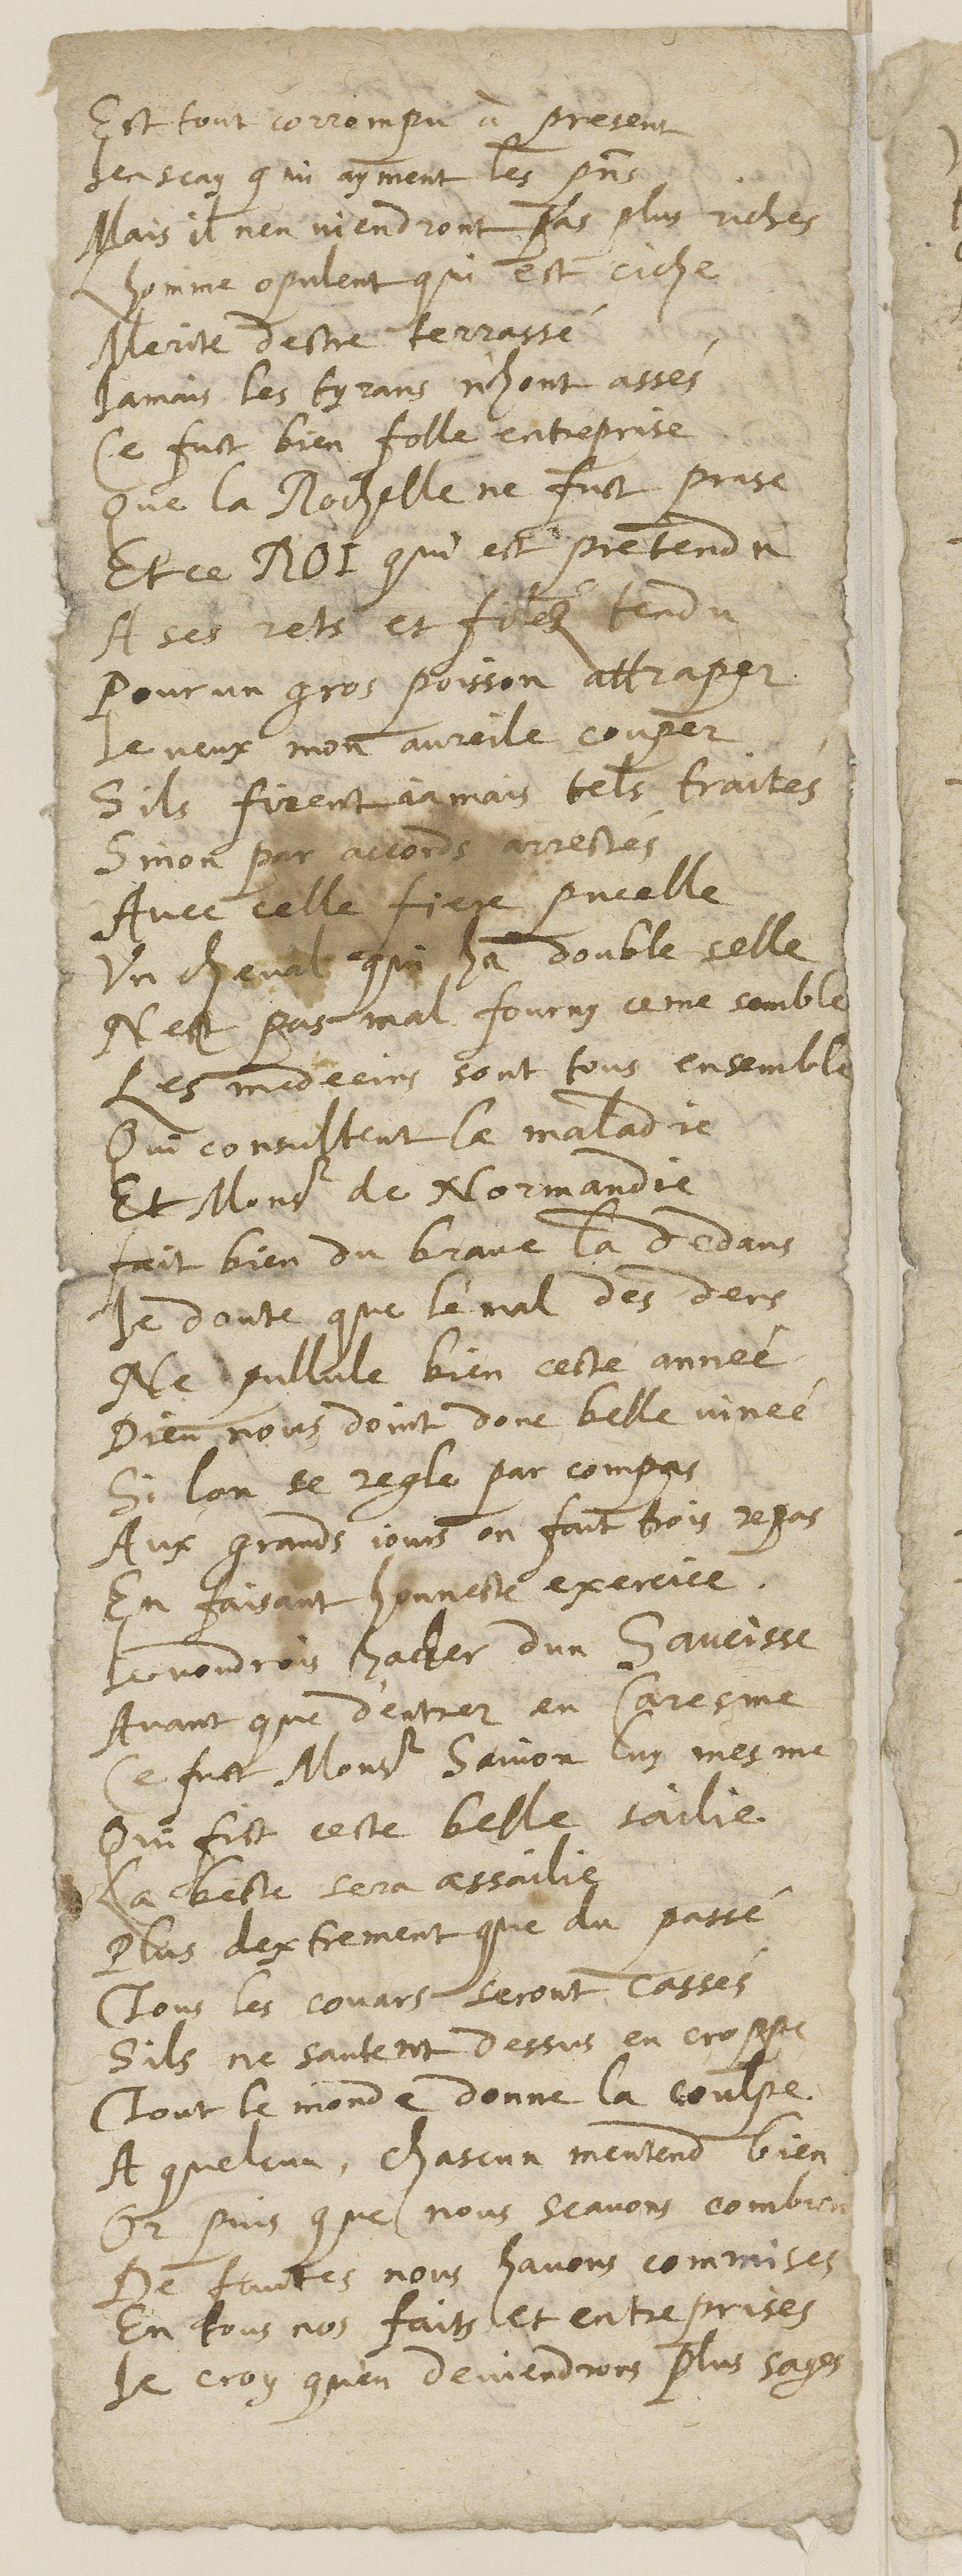 Est tout corrompu à present
Ien scay qui ayment les pñs
Mais il nen uiendront pas plus riches
Lhomme opulent qui est ciche
Merite destre terrassé
Iamais les tyrans n'hont assés
Ce fust bien folle entreprise
Que la Rochelle ne fust prise
Et ce ROI qui est pretendu
A ses rets et filez tendu
Pour un gros poisson attraper
Ie ueux mon aureile couper
Sils firent iamais tels traités
Sinon par accords arrestés
Auec celle fiere pucelle
Vn cheual qui hà double selle
Nest pas mal fourny ce me semble
Les medecins sont tous ensemble
Qui consultent la maladie
Et Monsr de Normandie
fait bien du braue la dedans
Ie doute que le mal des dens
Ne pullule bien ceste anneé
Dieu nous doint donc belle uineé
Si lon se regle par compas
Aux grands iours on fait trois repas
En faisant honneste exercice.
Ie uoudrois hacher dun Saucisse
Auant que d'entrer en Caresme
Ce fust Monsr Sainon luy mesme
Qui fist ceste belle sailie
La beste sera assailie
Plus dextrement que du passé
Tous les couars seront cassés
Sils ne sautent dessus en croppe
Tout le monde donne la coulpe
A quelcun, chascun mentend bien
Or puis que nous scauons combien
De fautes nous hauons commises
En tous nos faits et entreprises
Ie croy quen deuiendrons plus sages